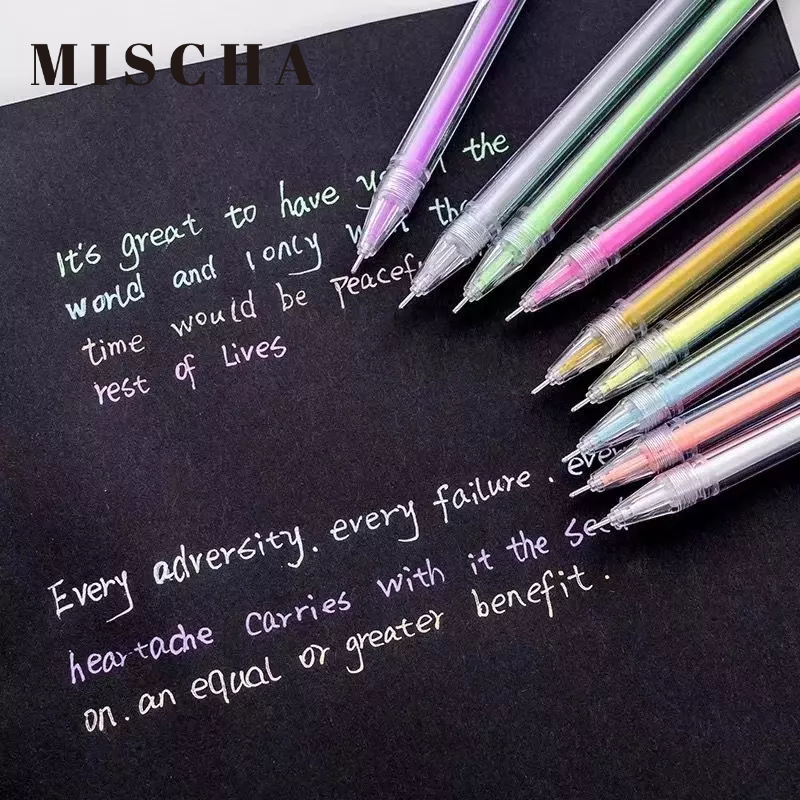 MISCHA
It's great to have the
world and I only
time would be
rest of Lives
Every adversity. every failure.
heartache carries with it the
on. an equal or greater benefit.